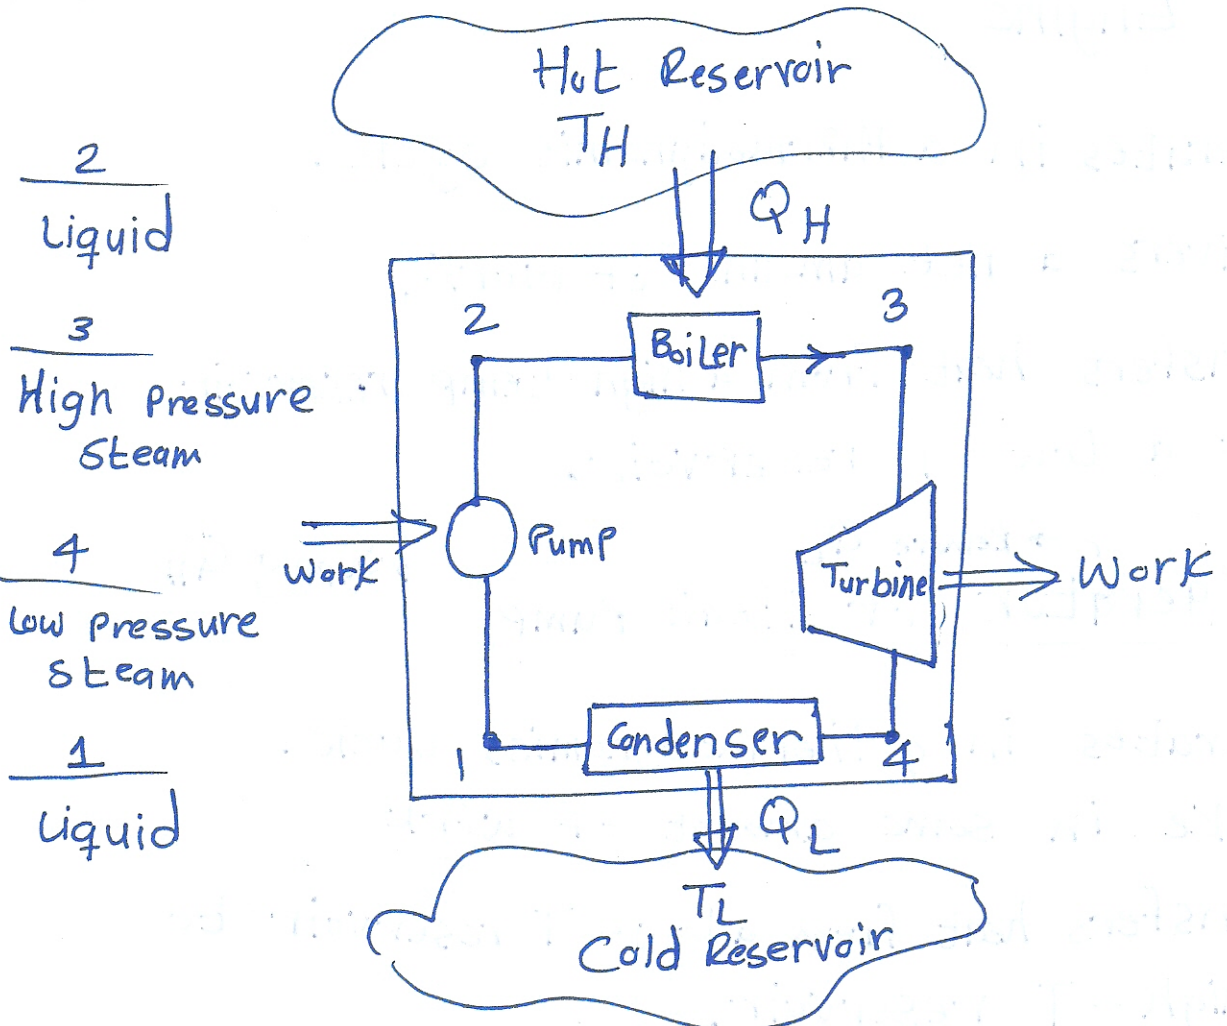 Hot Reservoir
TH
QH
2
Liquid
3
High Pressure
Steam
4
Low Pressure
Steam
1
Liquid
2
Boiler
3
Work
Pump
Turbine
Work
1
Condenser
4
QL
TL
Cold Reservoir